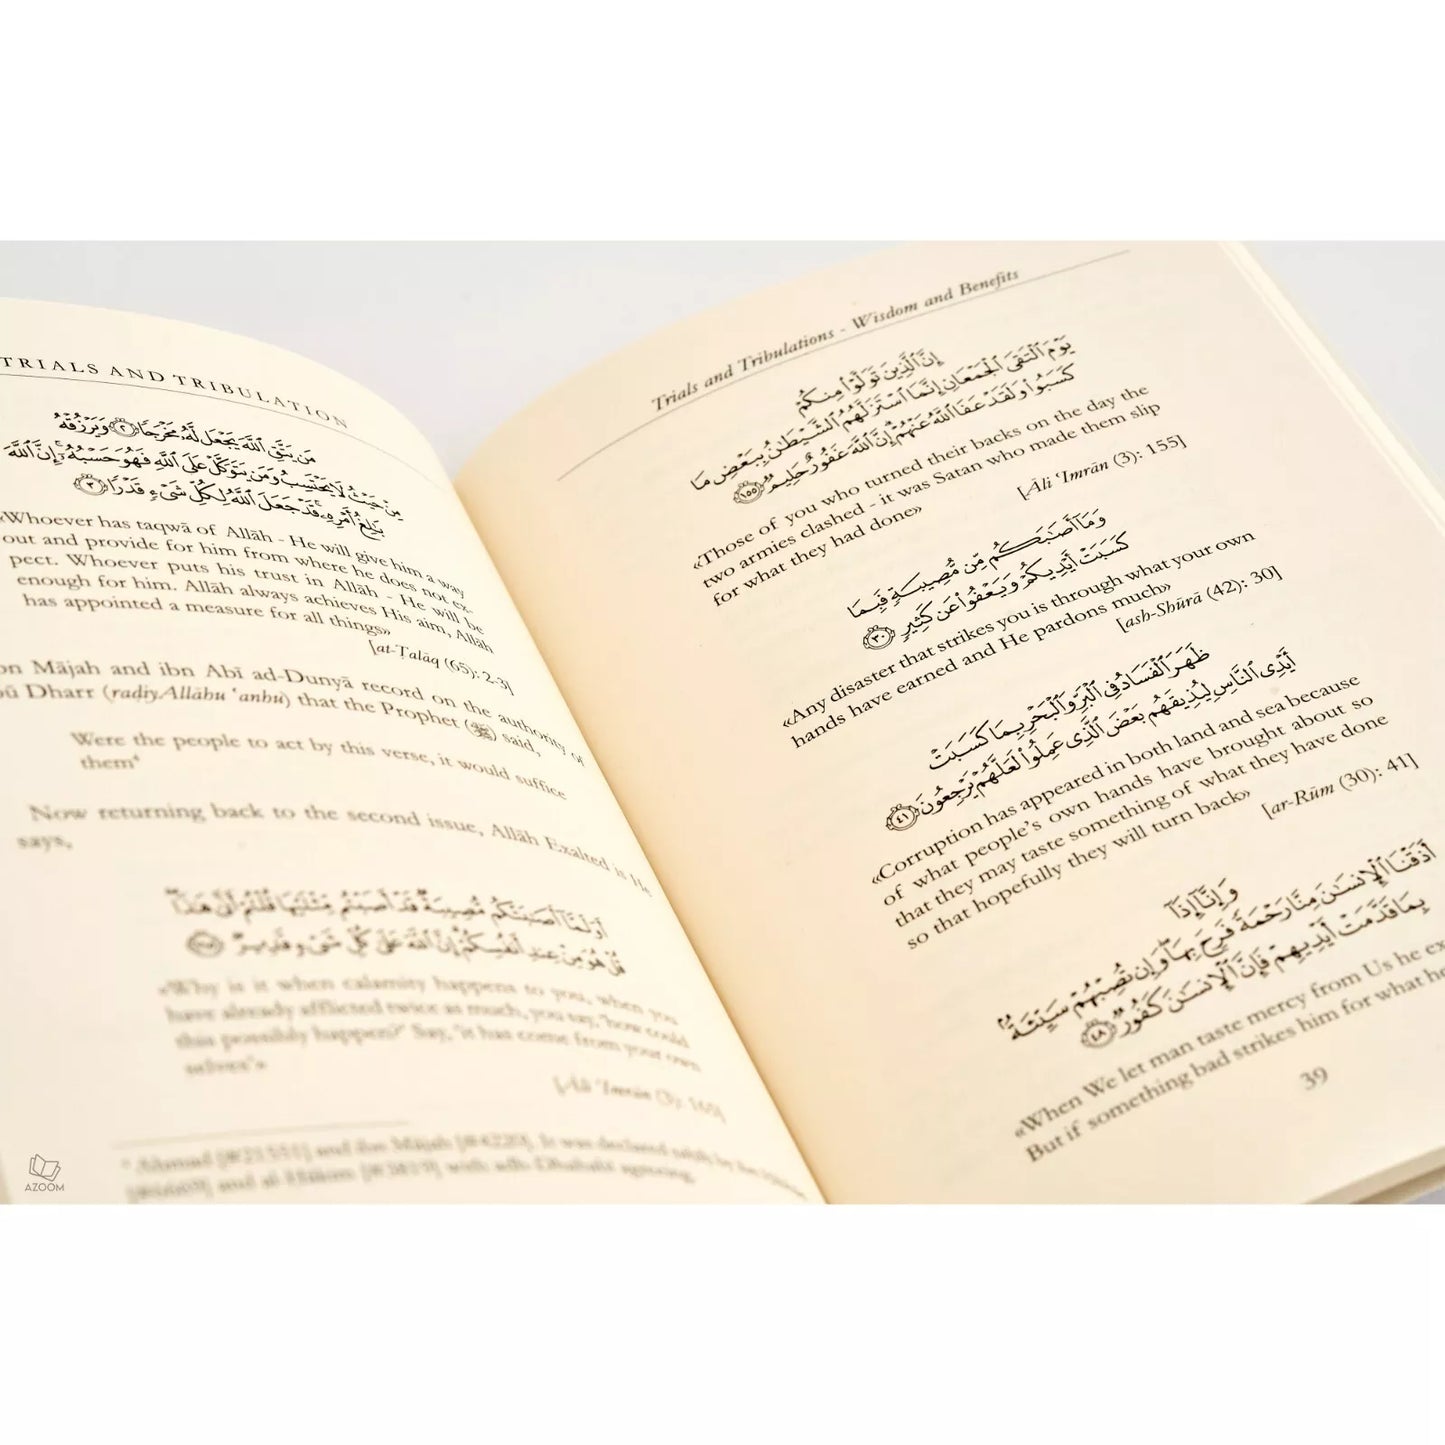 TRIALS AND TRIBULATION
مَن يَتَّقِ ٱللَّهَ يَجْعَل لَّهُۥ مَخْرَجًا ٢ وَيَرْزُقْهُ
مِنْ حَيْثُ لَا يَحْتَسِبُ وَمَن يَتَوَكَّلْ عَلَى ٱللَّهِ فَهُوَ حَسْبُهُۥٓ إِنَّ ٱللَّهَ
بَٰلِغُ أَمْرِهِۦ قَدْ جَعَلَ ٱللَّهُ لِكُلِّ شَىْءٍ قَدْرًا ٣
«Whoever has taqwā of Allāh - He will give him a way
out and provide for him from where he does not ex-
pect. Whoever puts his trust in Allāh - He will be
enough for him. Allāh always achieves His aim, Allāh
has appointed a measure for all things»
[at-Ṭalāq (65): 2-3]
Mājah and ibn Abī ad-Dunyā record on the authority of
Dharr (raḍiy Allāhu ‘anhu) that the Prophet (ﷺ) said,
Were the people to act by this verse, it would suffice
them⁴
Now returning back to the second issue, Allāh Exalted is He
says,
أَوَلَمَّآ أَصَٰبَتْكُم مُّصِيبَةٌ قَدْ أَصَبْتُم مِّثْلَيْهَا قُلْتُمْ أَنَّىٰ هَٰذَا
قُلْ هُوَ مِنْ عِندِ أَنفُسِكُمْ إِنَّ ٱللَّهَ عَلَىٰ كُلِّ شَىْءٍ قَدِيرٌ
«Why is it when calamity happens to you, when you
have already afflicted twice as much, you say, ‘how could
this possibly happen?’ Say, ‘it has come from your own
selves’»
[Āli ‘Imrān (3): 165]
and ibn Mājah [#4220]. It was declared
and al-Ḥākim with adh-Dhahabī agreeing.
AZOOM
Trials and Tribulations - Wisdom and Benefits
إِنَّ ٱلَّذِينَ تَوَلَّوْا۟ مِنكُمْ
يَوْمَ ٱلْتَقَى ٱلْجَمْعَانِ إِنَّمَا ٱسْتَزَلَّهُمُ ٱلشَّيْطَٰنُ بِبَعْضِ مَا
كَسَبُوا۟ وَلَقَدْ عَفَا ٱللَّهُ عَنْهُمْ إِنَّ ٱللَّهَ غَفُورٌ حَلِيمٌ ١٥٥
«Those of you who turned their backs on the day the
two armies clashed - it was Satan who made them slip
for what they had done»
[Āli ‘Imrān (3): 155]
وَمَآ أَصَٰبَكُم مِّن مُّصِيبَةٍ فَبِمَا
كَسَبَتْ أَيْدِيكُمْ وَيَعْفُوا۟ عَن كَثِيرٍ ٣٠
«Any disaster that strikes you is through what your own
hands have earned and He pardons much»
[ash-Shūrā (42): 30]
ظَهَرَ ٱلْفَسَادُ فِى ٱلْبَرِّ وَٱلْبَحْرِ بِمَا كَسَبَتْ
أَيْدِى ٱلنَّاسِ لِيُذِيقَهُم بَعْضَ ٱلَّذِى عَمِلُوا۟ لَعَلَّهُمْ يَرْجِعُونَ ٤١
«Corruption has appeared in both land and sea because
of what people's own hands have brought about so
that they may taste something of what they have done
so that hopefully they will turn back»
[ar-Rūm (30): 41]
وَإِنَّآ إِذَآ
أَذَقْنَا ٱلْإِنسَٰنَ مِنَّا رَحْمَةً فَرِحَ بِهَا وَإِن تُصِبْهُمْ سَيِّئَةٌۢ
بِمَا قَدَّمَتْ أَيْدِيهِمْ فَإِنَّ ٱلْإِنسَٰنَ كَفُورٌ ٤٨
«When We let man taste mercy from Us he
But if something bad strikes him for what
39